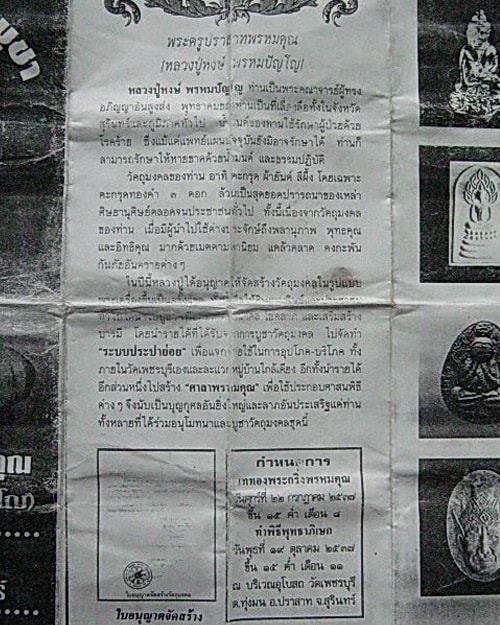 พระครูปราสาทพรหมคุณ
(หลวงปู่หงษ์ พรหมปัญโญ)
หลวงปู่หงษ์ พรหมปัญโญ ท่านเป็นพระคณาจารย์ผู้ทรง
อภิญญาอันสูงส่ง พุทธาคมของท่านเป็นที่เลื่องลือทั้งในจังหวัด
สุรินทร์และภูมิภาคทั่วไป น้ำมนต์ของท่านใช้รักษาผู้ป่วยด้วย
โรคร้าย ซึ่งแม้แต่แพทย์แผนปัจจุบันยังมิอาจรักษาได้ ท่านก็
สามารถรักษาให้หายขาดด้วยน้ำมนต์ และธรรมปฏิบัติ
วัตถุมงคลของท่าน อาทิ ตะกรุด ผ้ายันต์ สีผึ้ง โดยเฉพาะ
ตะกรุดทองคำ ๓ ดอก ล้วนเป็นสุดยอดปรารถนาของเหล่า
ศิษยานุศิษย์ตลอดจนประชาชนทั่วไป ทั้งนี้เนื่องจากวัตถุมงคล
ของท่าน เมื่อมีผู้นำไปใช้ต่างประจักษ์ถึงพลานุภาพ พุทธคุณ
และอิทธิคุณ มากด้วยเมตตามหานิยม แคล้วคลาด คงกะพัน
กันภัยอันตรายต่างๆ
ในปีนี้หลวงปู่ได้อนุญาตให้จัดสร้างวัตถุมงคลในรูปแบบ
โชคลาภ และเสริมสร้าง
บารมี โดยนำรายได้ที่ได้รับจากการบูชาวัตถุมงคล ไปจัดทำ
"ระบบประปาย่อย" เพื่อแจกจ่ายใช้ในการอุปโภค-บริโภค ทั้ง
ภายในวัดเพชรบุรีและละแวกหมู่บ้านใกล้เคียง อีกทั้งนำรายได้
อีกส่วนหนึ่งไปสร้าง "ศาลาพรหมคุณ" เพื่อใช้ประกอบศาสนพิธี
ต่างๆ จึงนับเป็นบุญกุศลอันยิ่งใหญ่และลาภอันประเสริฐแด่ท่าน
ทั้งหลายที่ได้ร่วมอนุโมทนาและบูชาวัตถุมงคลชุดนี้
กำหนดการ
เททองพระกริ่งพรหมคุณ
วันศุกร์ที่ ๒๒ กรกฎาคม ๒๕๓๗
ขึ้น ๑๕ ค่ำ เดือน ๘
ทำพิธีพุทธาภิเษก
วันพุธที่ ๑๙ ตุลาคม ๒๕๓๗
ขึ้น ๑๕ ค่ำ เดือน ๑๑
ณ บริเวณอุโบสถ วัดเพชรบุรี
ต.ทุ่งมน อ.ปราสาท จ.สุรินทร์
ใบอนุญาตจัดสร้างวัตถุมงคล
ใบอนุญาตจัดสร้าง